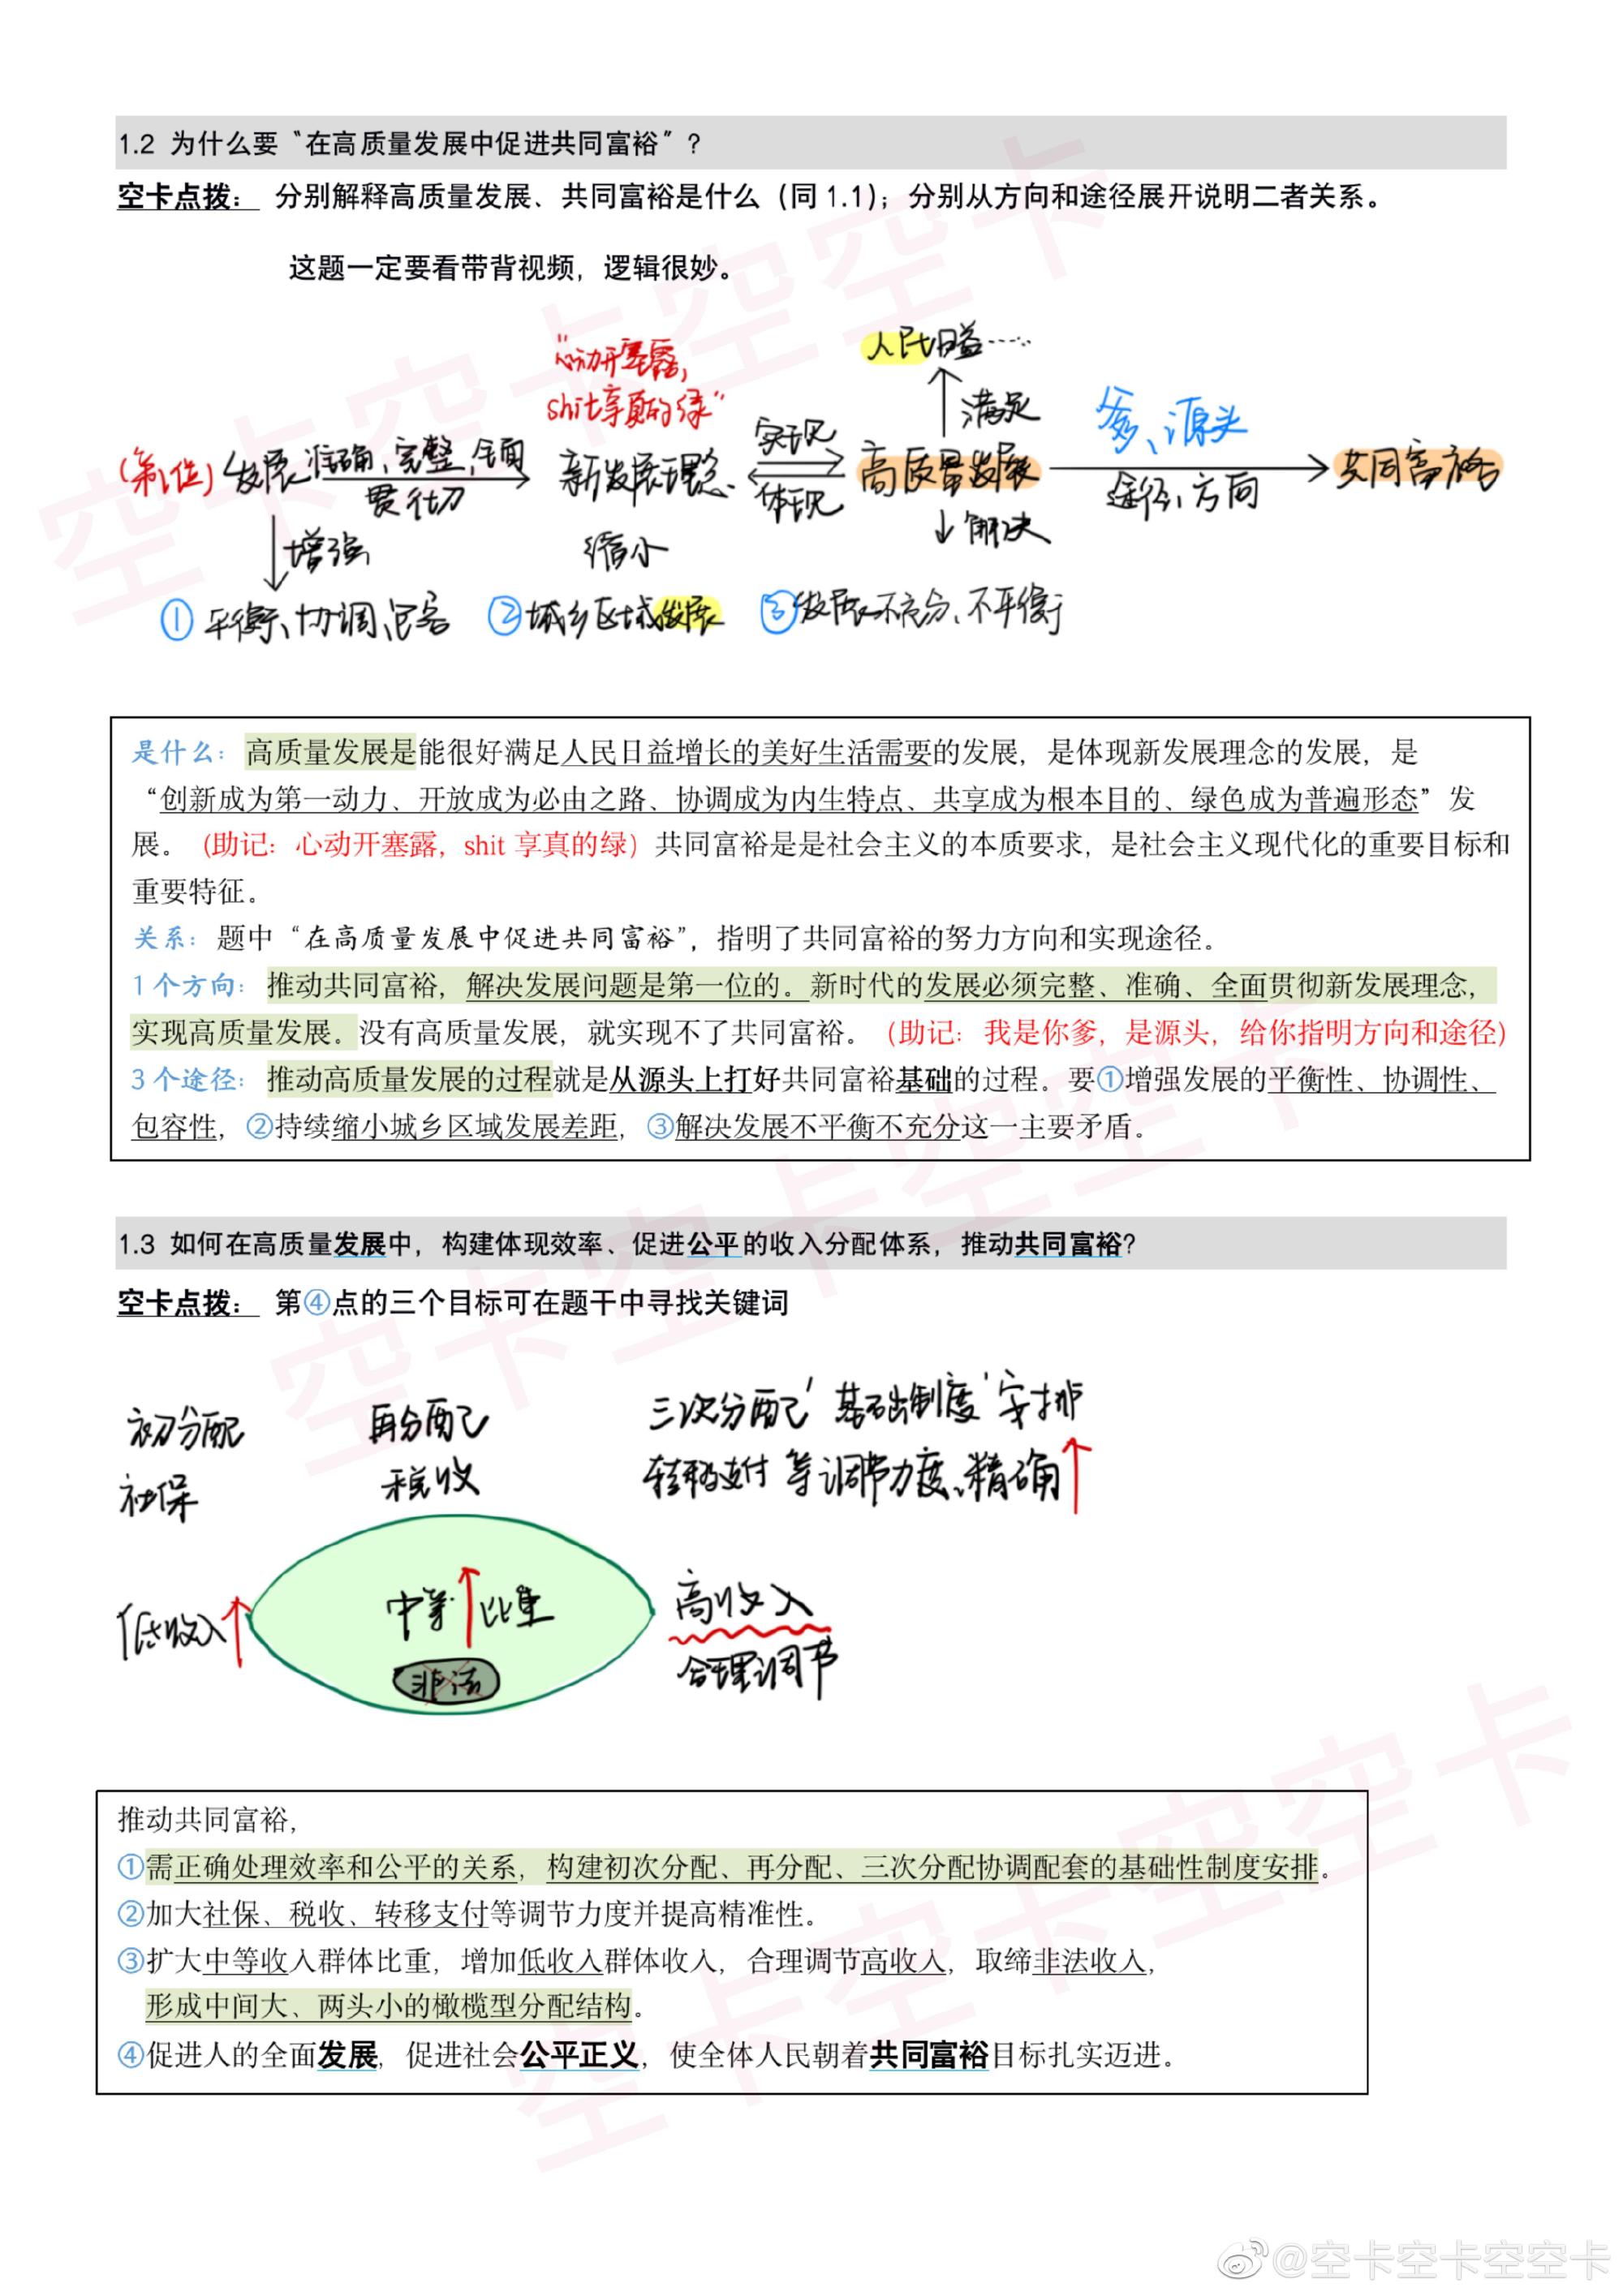 1.2 为什么要“在高质量发展中促进共同富裕”?
空卡点拨： 分别解释高质量发展、共同富裕是什么（同 1.1）；分别从方向和途径展开说明二者关系。
这题一定要看带背视频，逻辑很妙。
“心动开塞露，
shit享真的绿”
人民日益……
满足
(第1位) 发展 准确、完整、全面
贯彻
新发展理念
实现
体现
高质量发展
爹、源头
途径、方向
共同富裕
增强
缩小
解决
①平衡、协调、包容 ②城乡区域发展 ③发展不充分、不平衡
是什么：高质量发展是能很好满足人民日益增长的美好生活需要的发展，是体现新发展理念的发展，是
“创新成为第一动力、开放成为必由之路、协调成为内生特点、共享成为根本目的、绿色成为普遍形态”发
展。（助记：心动开塞露，shit 享真的绿）共同富裕是是社会主义的本质要求，是社会主义现代化的重要目标和
重要特征。
关系：题中“在高质量发展中促进共同富裕”，指明了共同富裕的努力方向和实现途径。
1 个方向：推动共同富裕，解决发展问题是第一位的。新时代的发展必须完整、准确、全面贯彻新发展理念，
实现高质量发展。没有高质量发展，就实现不了共同富裕。（助记：我是你爹，是源头，给你指明方向和途径）
3 个途径：推动高质量发展的过程就是从源头上打好共同富裕基础的过程。要①增强发展的平衡性、协调性、
包容性，②持续缩小城乡区域发展差距，③解决发展不平衡不充分这一主要矛盾。
1.3 如何在高质量发展中，构建体现效率、促进公平的收入分配体系，推动共同富裕?
空卡点拨： 第④点的三个目标可在题干中寻找关键词
初分配 再分配 三次分配‘基础制度’安排
社保 税收 转移支付 等调节力度、精确
低收入 中等 比重 高收入
非法 合理调节
推动共同富裕，
①需正确处理效率和公平的关系，构建初次分配、再分配、三次分配协调配套的基础性制度安排。
②加大社保、税收、转移支付等调节力度并提高精准性。
③扩大中等收入群体比重，增加低收入群体收入，合理调节高收入，取缔非法收入，
形成中间大、两头小的橄榄型分配结构。
④促进人的全面发展，促进社会公平正义，使全体人民朝着共同富裕目标扎实迈进。
空卡空卡空空卡
空卡空卡空空卡
空卡空卡空空卡
@空卡空卡空空卡